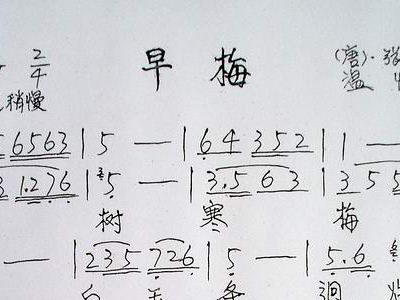 2/4 早 梅 (唐)·张
稍慢 温
6563 | 5 — | 64 352 | 1 —
1.276 | 5 — | 3.5 63 | 3 5 5
树 寒 梅
— | 235 726 | 5 — | 5.6
条 迥